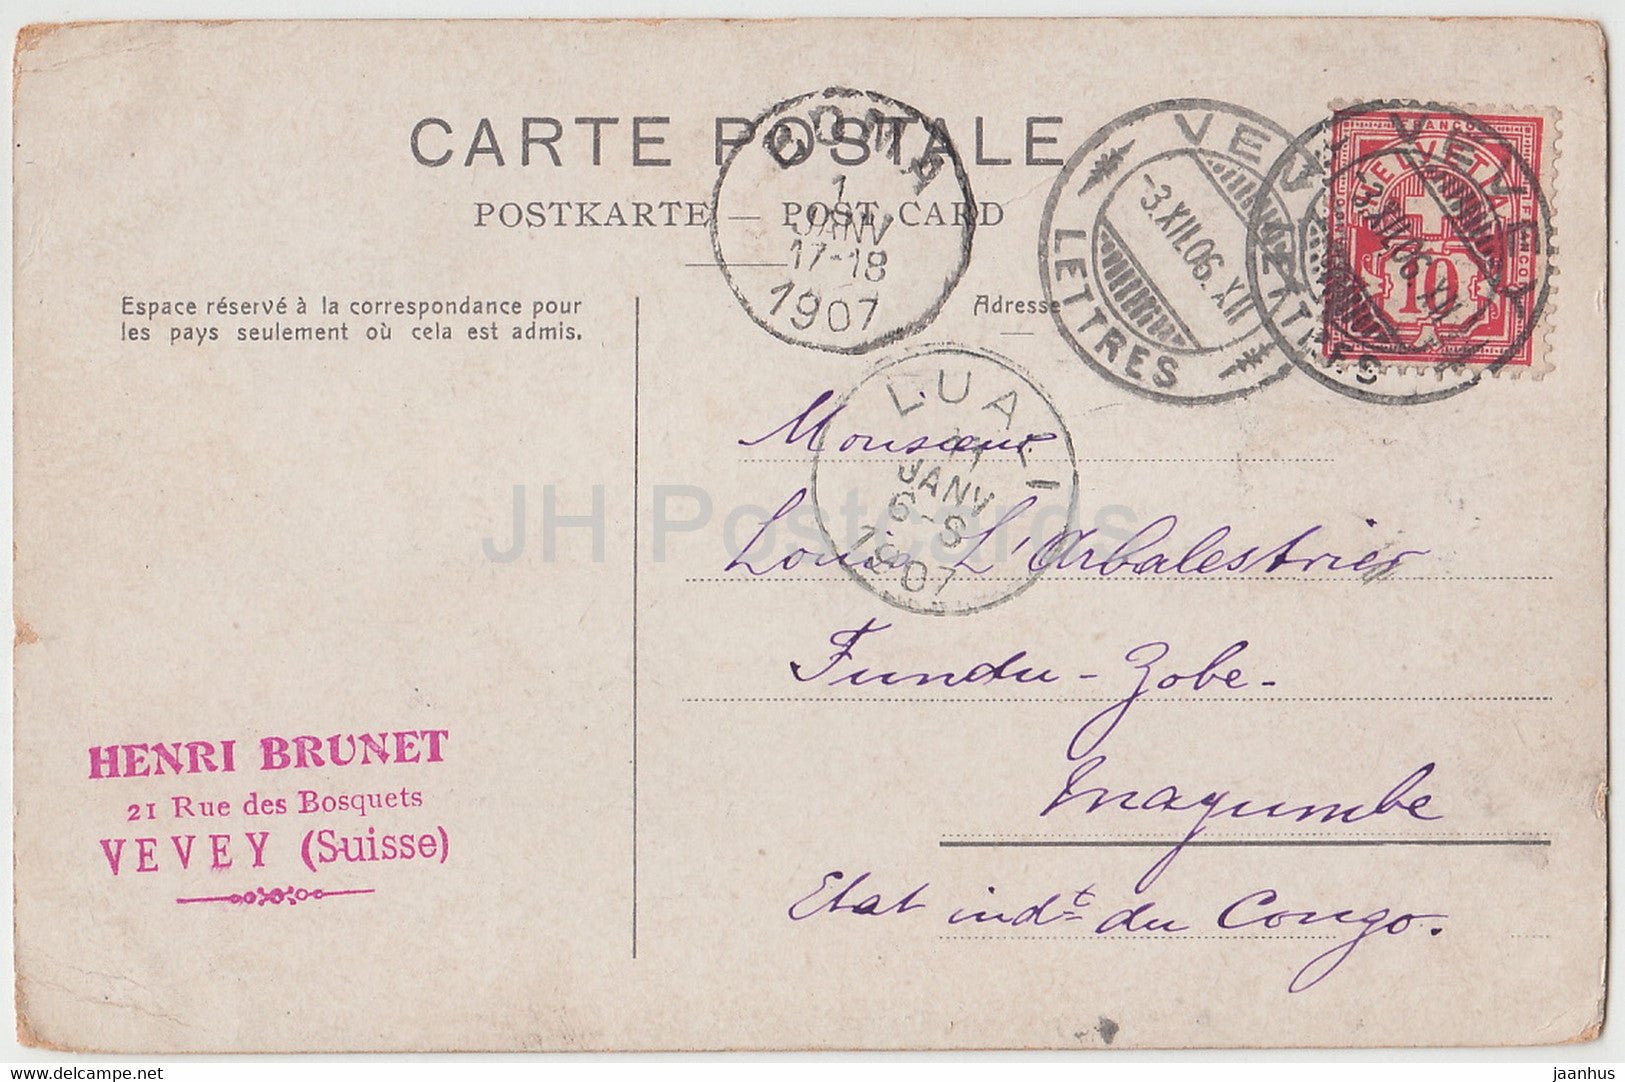 CARTE POSTALE
POSTKARTE — POST CARD
Espace réservé à la correspondance pour
les pays seulement où cela est admis.
Adresse
BOMA
1
JANV
17-18
1907
VEVEY
-3.XII.06.XII
LETTRES
VEVEY
-3.XII.06.XII
LETTRES
FRANCO
HELVETIA
10
LUALI
11
JANV
6-8
1907
Monsieur
Louis L'Arbalestrier
Fundu-Zobe-
Mayumbe
Etat indt du Congo.
HENRI BRUNET
21 Rue des Bosquets
VEVEY (Suisse)
JH Postcards
www.delcampe.net
jaanhus